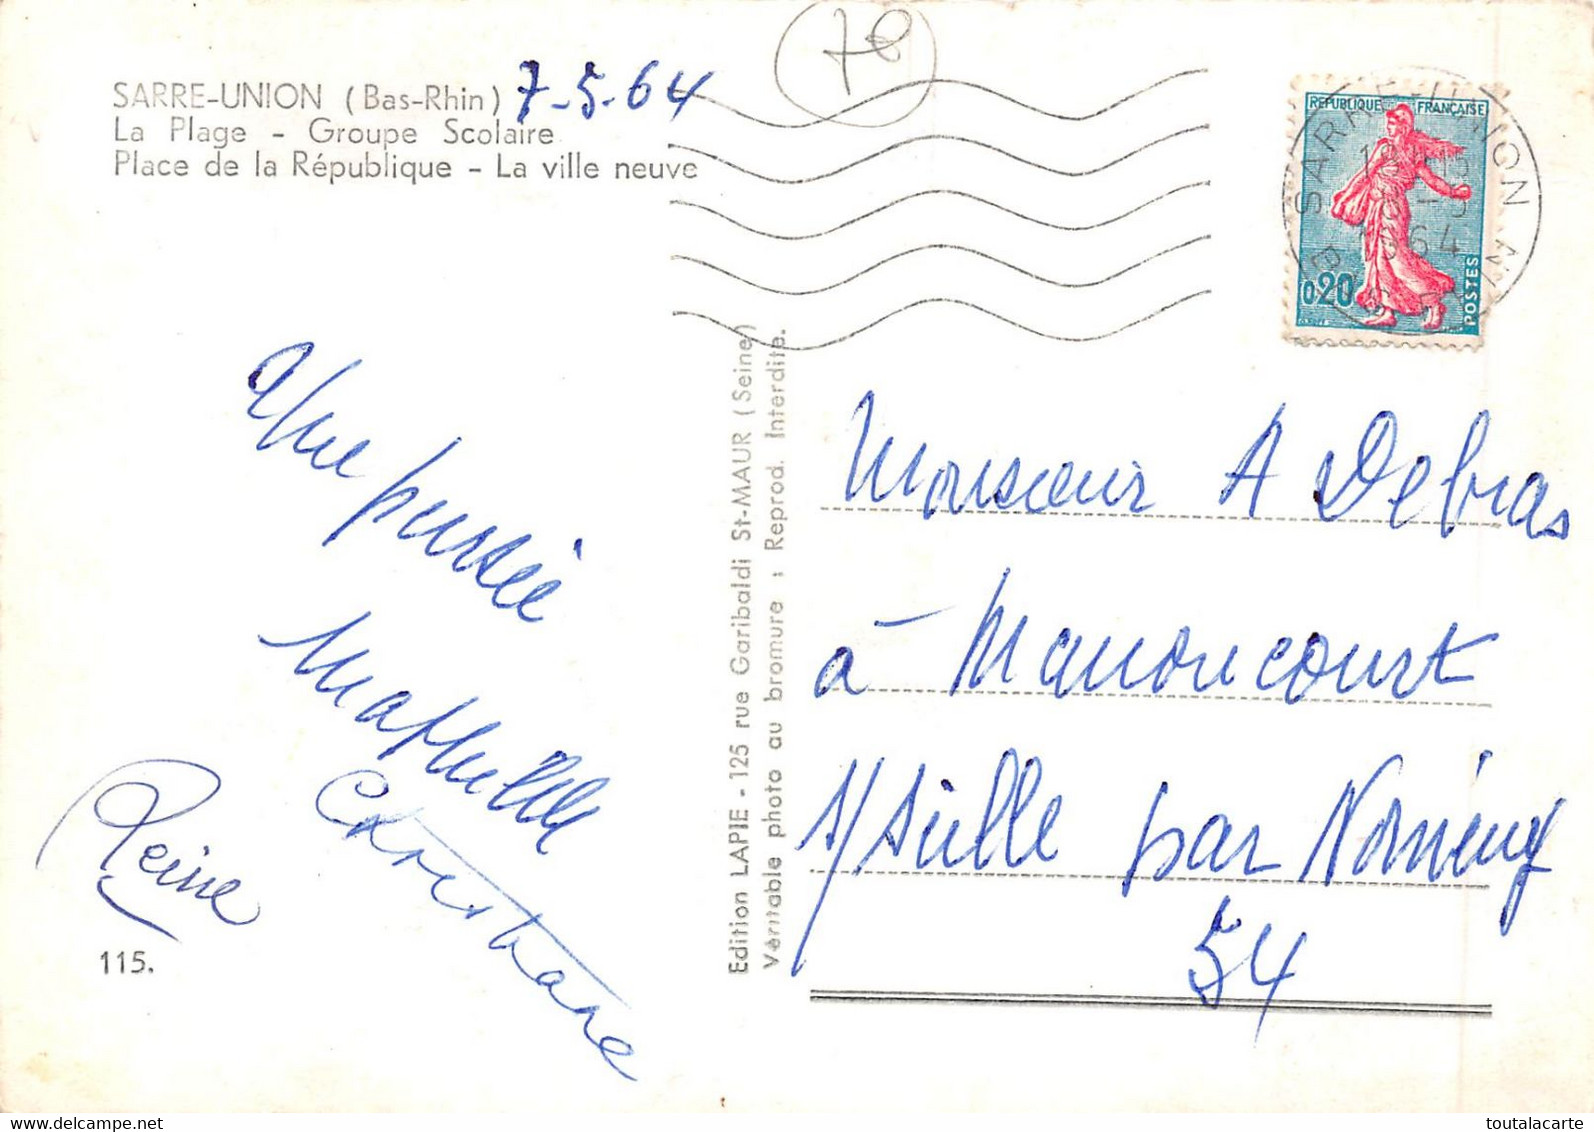 78
SARRE-UNION (Bas-Rhin) 7-5-64
La Plage - Groupe Scolaire
Place de la République - La ville neuve
REPUBLIQUE FRANÇAISE
0,20
POSTES
SARRE-UNION
1964
Une pensée
Christiane
Reine
115.
Edition LAPIE - 125 rue Garibaldi St-MAUR (Seine)
Véritable photo au bromure ; Reprod. Interdite.
Monsieur A Debras
à Manoncourt
s/ Seille par Nomeny
54
toutalacarte